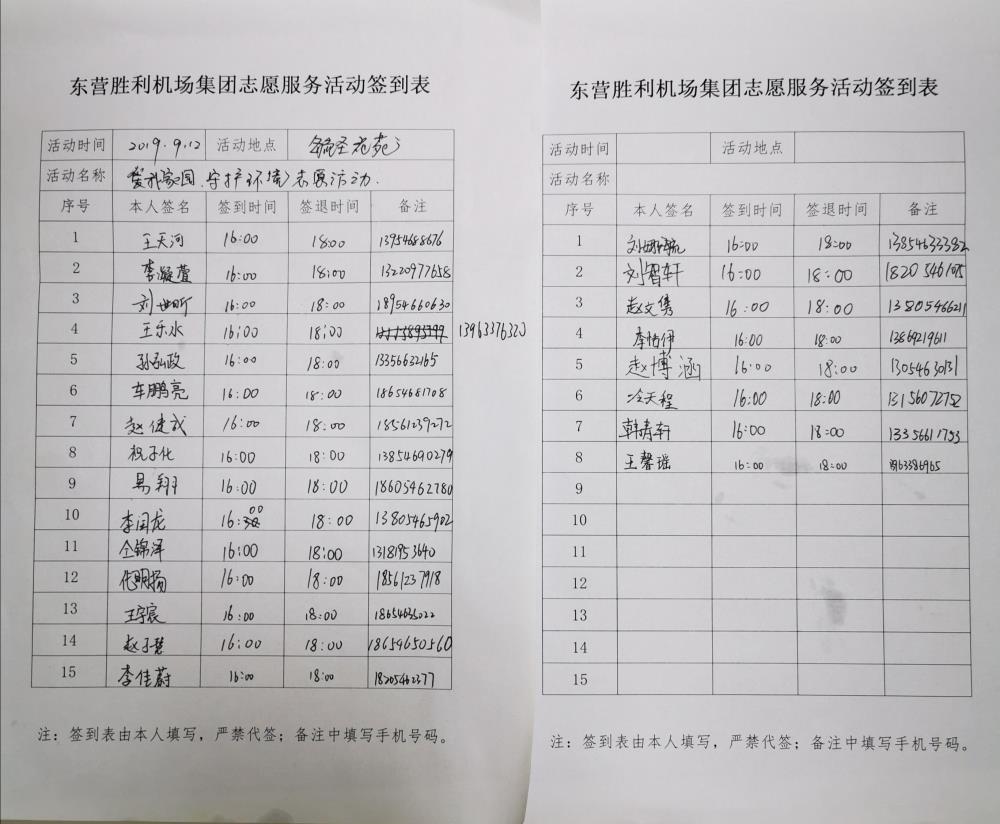 东营胜利机场集团志愿服务活动签到表
活动时间 2019.9.12 活动地点
活动名称 爱我家园、守护环境志愿活动.
序号 本人签名 签到时间 签退时间 备注
1 王天河 16:00 18:00 13954688676
2 李凝萱 16:00 18:00 13220977658
3 刘世昕 16:00 18:00 18954660630
4 王乐水 16:00 18:00 13963376320
5 孙弘政 16:00 18:00 13356632165
6 车鹏亮 16:00 18:00 18654681708
7 赵健戎 16:00 18:00 18561239272
8 祝子化 16:00 18:00 13854690279
9 易翔 16:00 18:00 18605462780
10 李闰龙 16:00 18:00 13805465902
11 仝锦泽 16:00 18:00 13181953640
12 16:00 18:00 18561237918
13 王宇宸 16:00 18:00
14 赵子慧 16:00 18:00 18654650560
15 李佳蔚 16:00 18:00 18205462377
注：签到表由本人填写，严禁代签；备注中填写手机号码。
东营胜利机场集团志愿服务活动签到表
活动时间 活动地点
活动名称
序号 本人签名 签到时间 签退时间 备注
1 16:00 18:00 13854633382
2 刘智轩 16:00 18:00
3 赵文隽 16:00 18:00 13805466211
4 李怡伊 16:00 18:00 13869219611
5 赵博涵 16:00 18:00 13054630131
6 冷天程 16:00 18:00 13156072752
7 韩青轩 16:00 18:00 13356611753
8 王馨瑶 16:00 18:00
9
10
11
12
13
14
15
注：签到表由本人填写，严禁代签；备注中填写手机号码。